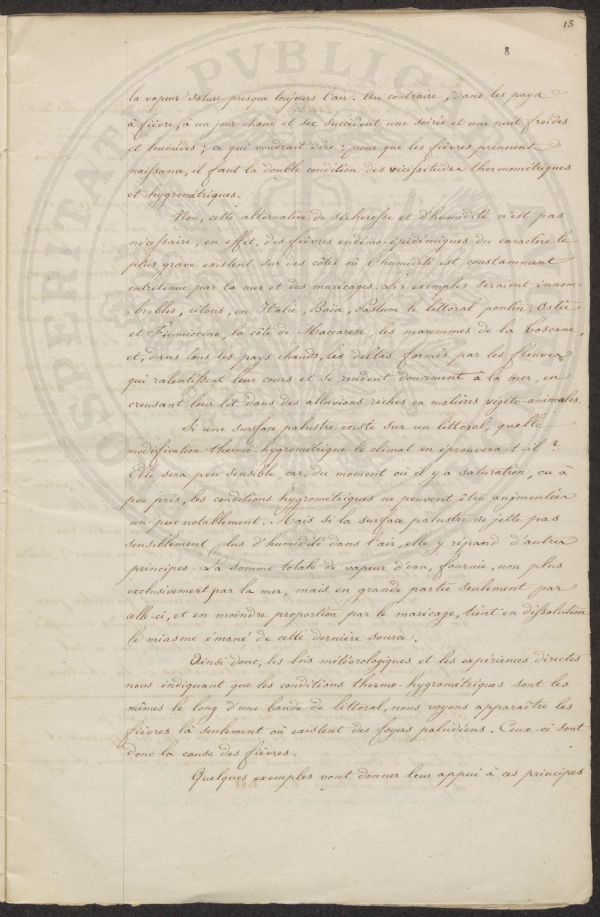 13
8
la vapeur sature presque toujours l'air. Au contraire, dans les pays
à fièvre, à un jour chaud et sec succèdent une soirée et une nuit froides
et humides; ce qui voudrait dire: pour que les fièvres prennent
naissance, il faut la double condition des vicissitudes thermométriques
et hygrométriques.
Non, cette alternative de sécheresse et d'humidité n'est pas
nécessaire, en effet, des fièvres endémo-épidémiques du caractère le
plus grave existent sur des côtes où l'humidité est constamment
entretenue par la mer et des marécages. Les exemples seraient innom-
brables; citons, en Italie, Baïa, Pastum le littoral pontin, Ostie
et Fiumiccino, la côte de Maccarese, les maremmes de la Toscane,
et, dans tous les pays chauds, les deltas formés par les fleuves
qui ralentissent leur cours et se rendent doucement à la mer, en
creusant leur lit dans des alluvions riches en matières végéto-animales.
Si une surface palustre existe sur un littoral, quelle
modification thermo-hygrométrique le climat en éprouvera-t-il?
Elle sera peu sensible, car, du moment où il y a saturation, ou à
peu près, les conditions hygrométriques ne peuvent être augmentées
un peu notablement. Mais si la surface palustre ne jette pas
sensiblement plus d'humidité dans l'air, elle y répand d'autres
principes. La somme totale de vapeur d'eau, fournie, non plus
exclusivement par la mer, mais en grande partie seulement par
celle-ci, et en moindre proportion par le marécage, tient en dissolution
le miasme émané de cette dernière source.
Ainsi donc, les lois météorologiques et les expériences directes
nous indiquant que les conditions thermo-hygrométriques sont les
mêmes le long d'une bande de littoral, nous voyons apparaître les
fièvres là seulement où existent des foyers paludéens. Ceux-ci sont
donc la cause des fièvres.
Quelques exemples vont donner leur appui à ces principes